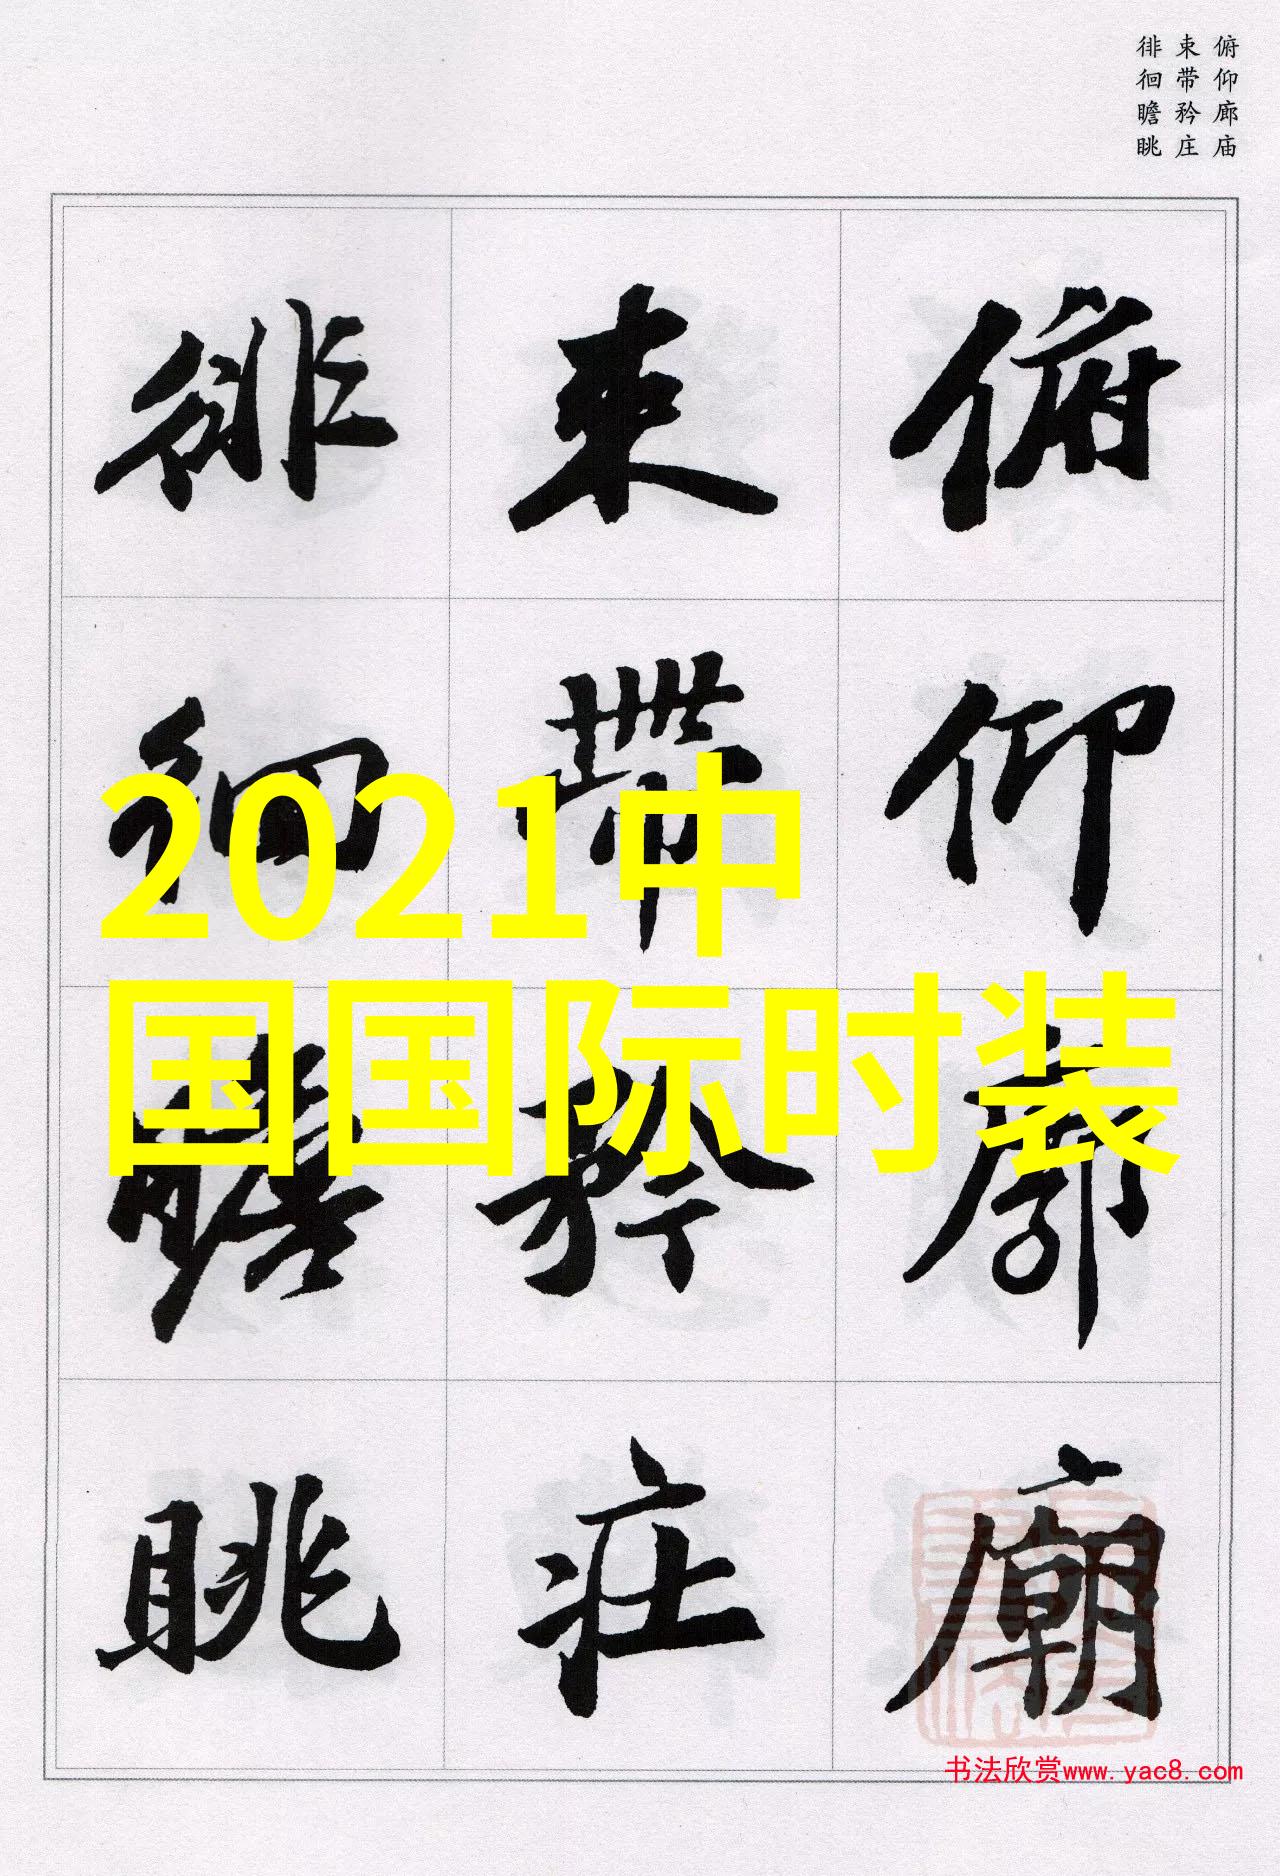 俯仰廊庙
束带矜庄
徘徊瞻眺
俯仰廊廟
束帶矜莊
徘徊瞻眺
2021中
国国际时装
书法欣赏www.yac8.com